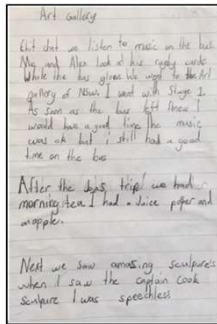 Art Gallery
Chit chat we listen to music on the bus
Me and Alex look at his rugby cards
While the bus drives We went to the Art
gallery of NSW. I went with Stage 1.
As soon as the bus left I knew I
would have a good time the music
was ok but i still had a good
time on the bus
After the bus trip! we had
morning tea I had a Juice poper and
an apple.
Next we saw amazing sculpure's
when I saw the captain cook
sculpure I was speechless